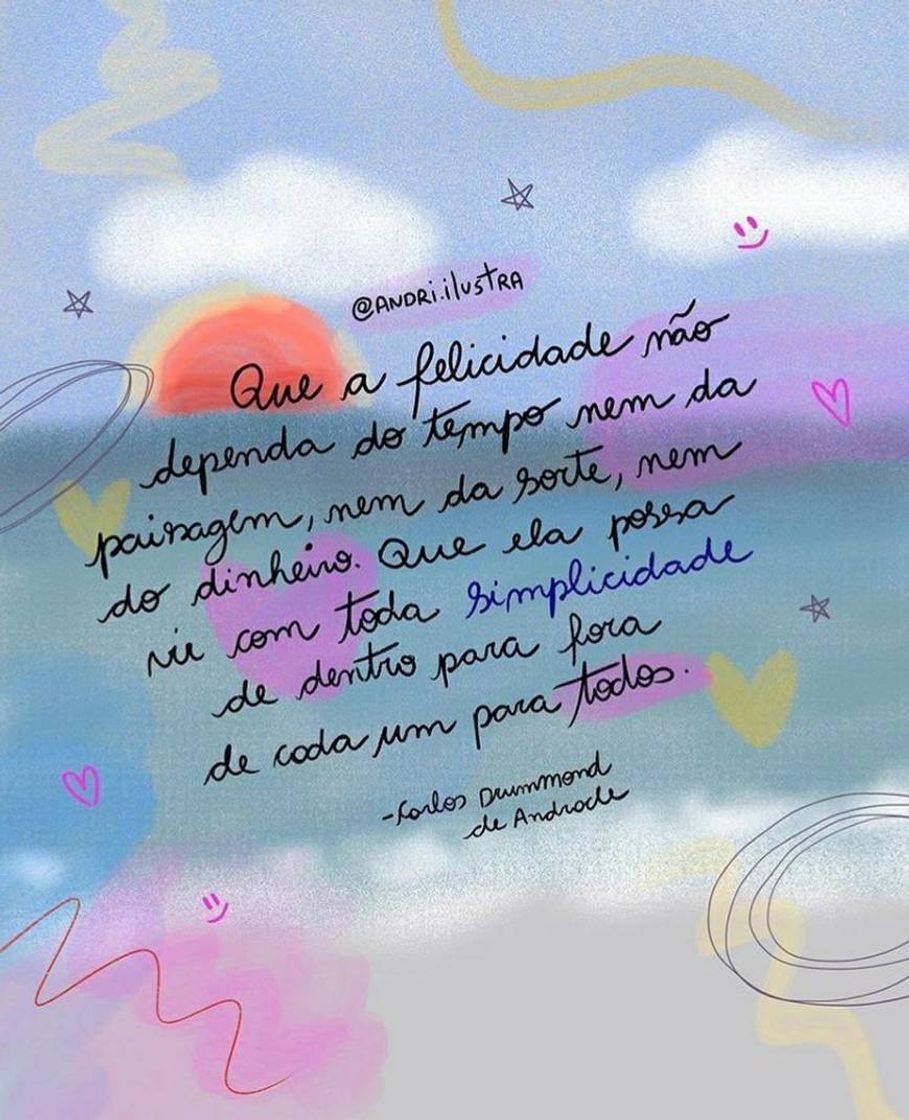 @ANDRI.ilustRA
Que a felicidade não
dependa do tempo nem da
paisagem, nem da sorte, nem
do dinheiro. Que ela possa
vir com toda simplicidade
de dentro para fora
de cada um para todos.
-Carlos Drummond
de Andrade